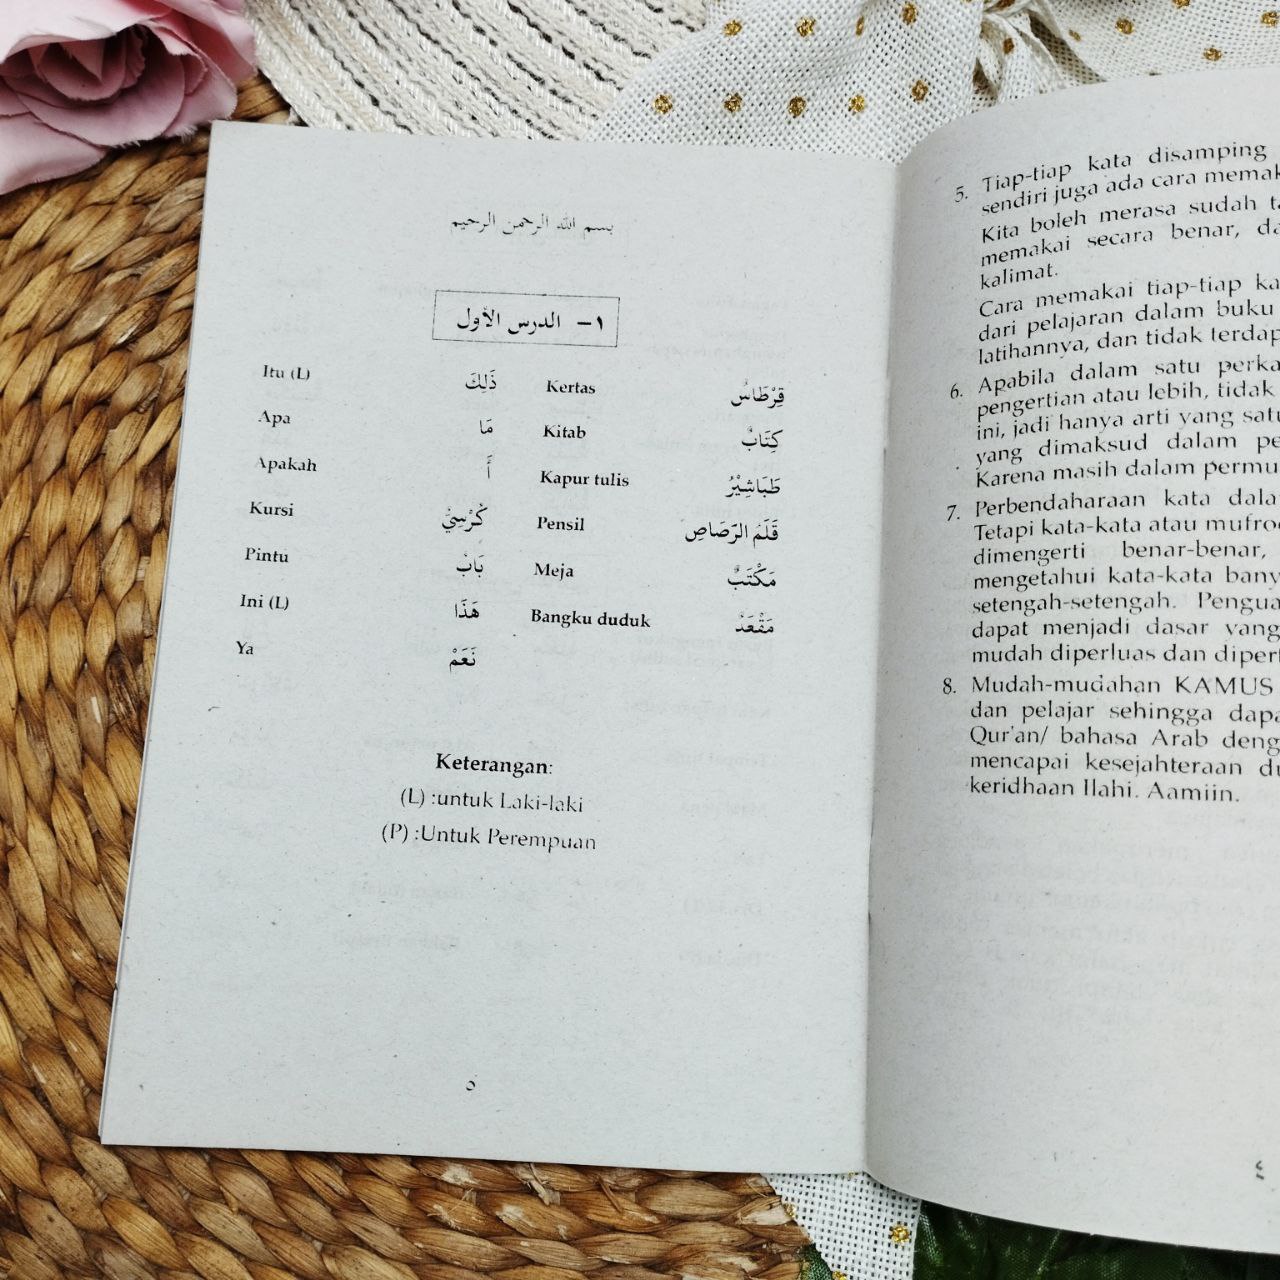 بسم الله الرحمن الرحيم
١- الدرس الأول
Itu (L) ذَلِكَ Kertas قِرْطَاسٌ
Apa مَا Kitab كِتَابٌ
Apakah أَ Kapur tulis طَبَاشِيْرُ
Kursi كُرْسِيٌّ Pensil قَلَمُ الرَّصَاصِ
Pintu بَابٌ Meja مَكْتَبٌ
Ini (L) هَذَا Bangku duduk مَقْعَدٌ
Ya نَعَمْ
Keterangan:
(L) :untuk Laki-laki
(P) :Untuk Perempuan
٥
5. Tiap-tiap kata disamping
sendiri juga ada cara memak
Kita boleh merasa sudah ta
memakai secara benar, da
kalimat.
Cara memakai tiap-tiap ka
dari pelajaran dalam buku
latihannya, dan tidak terdap
6. Apabila dalam satu perka
pengertian atau lebih, tidak
ini, jadi hanya arti yang satu
yang dimaksud dalam pe
Karena masih dalam permu
7. Perbendaharaan kata dala
Tetapi kata-kata atau mufro
dimengerti benar-benar,
mengetahui kata-kata bany
setengah-setengah. Pengua
dapat menjadi dasar yang
mudah diperluas dan diper
8. Mudah-mudahan KAMUS
dan pelajar sehingga dapa
Qur'an/ bahasa Arab deng
mencapai kesejahteraan du
keridhaan Ilahi. Aamiin.
٤